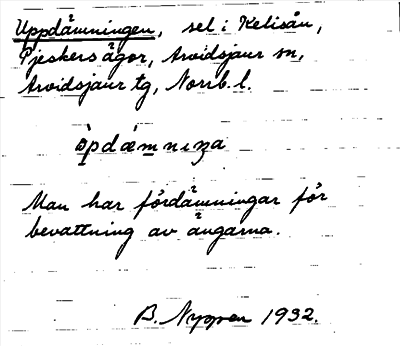 Uppdämningen, sel i Kelisån,
Pjeskers ägor, Arvidsjaur sn,
Arvidsjaur tg, Norrb. l.
Man har fördämningar för
bevattning av ängarna.
B. Nygren 1932.